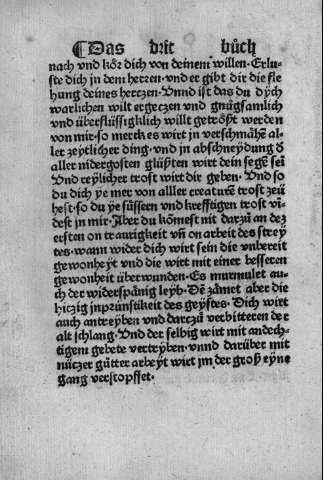 ¶Das drit bůch
nach vnd kőr dich von deinem willen. Erlu-
ste dich jn dem herren. vnd er gibt dir die fle
hung deines hertzen. Vnnd ist das du dych
warlichen wilt ergeczen vnd gnůgsamlich
vnd überflüssigklich willt getrőst werden
von mir. so merck es wirt in verschmåhē al-
ler zeytlicher ding. vnd jn abschneydung ð
aller nidergosten glüsten wirt dein segē sei
Vnd reylicher trost wirt dir geben. Vnd so
du dich ye mer von alller creaturē trost zeü
hest. so du ye süssern vnd krefftigen trost vi-
dest jn mir. Aber du kőmest nit darzů an dez
ersten on traurigkeit vn̄ on arbeit des strey
tes. wann wider dich wirt sein die vnbereit
gewonheyt vnd die wirt mit einer besseren
gewonheit überwunden. Es murmulet au-
ch der widerspånig leyb. Dē zåmet aber die
hiczig jnprünstikeit des geystes. Dich wirt
auch antreyben vnd darczů verbitteren der
alt schlang. Vnd der selbig wirt mit andech-
tigem gebete vertryben. vnnd darüber mit
nüczer gůtter arbeyt wirt jm der groß eyne
gang verstopffet.